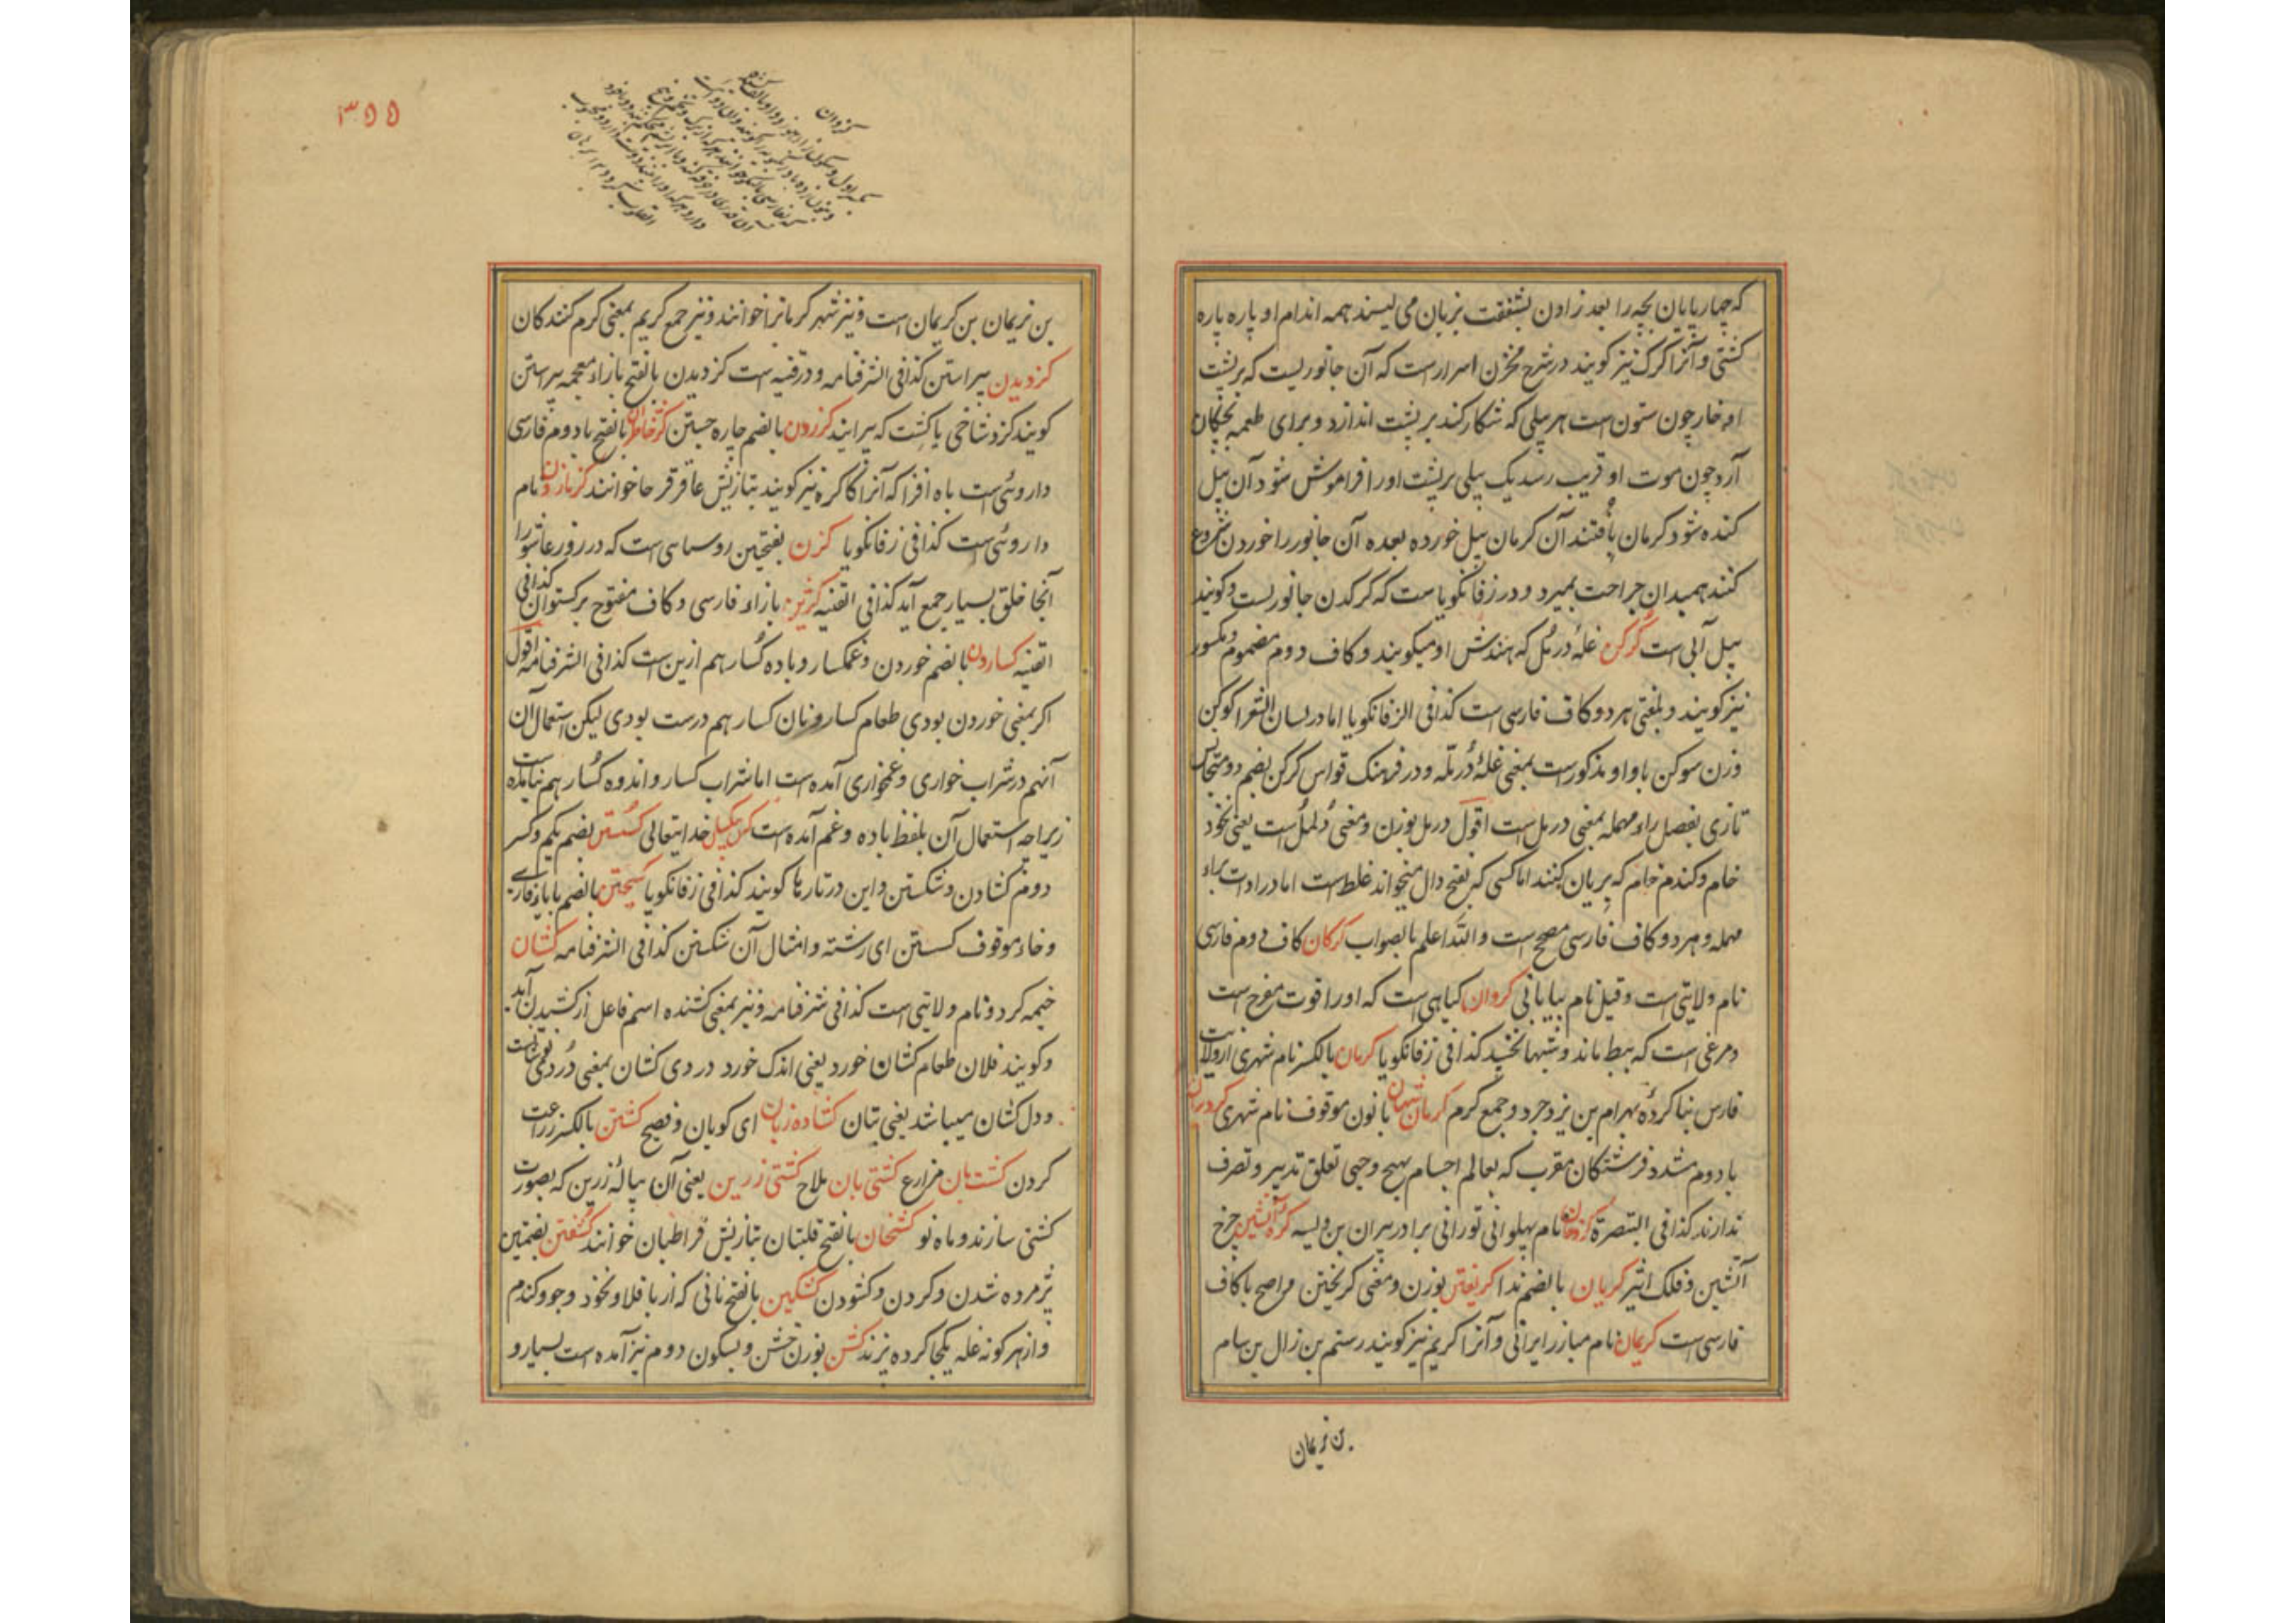 که چهارپایان بچه را بعد زادن بشفقت بزبان می لیسند همه اندام او پاره پاره
کشتی و آنرا کرک نیز کویند در شرح مخزن اسرارست که آن جانوریست که بر پشت
او خار چون ستون است هر پیلی که شکار کند بر پشت اندازد و برای طعمه بچکان
آرد چون موت او قریب رسد یک پیلی بر پشت او را فراموش شود آن پیل
کنده شود کرمان بافتند آن کرمان پیل خورده بعده آن جانور را خوردن شروع
کنند همبدان جراحت بمیرد و در زفانکویا ست که کرکدن جانوریست و کویند
پیل آبی است کرکن غلۀ در مل که هندش او میکویند و کاف دوم مضموم و مکسور
نیز کویند و بلغتی هر دو کاف فارسی است کذا فی الزفانکویا اما در لسان الشعرا کوکن
وزن سوکن با واو مذکورست بمعنی غلۀ در مله و در فرهنک قواس کرکن بضم دو متجانس
تازی بفصل راء مهمله بمعنی در مل است اقول در مل بوزن و معنی دلمل است یعنی نخود
خام و کندم خام که بریان کنند اما کسی که بفتح دال میخواند غلط است اما در ادات براء
مهمله و هر دو کاف فارسی مصحح ست والله اعلم بالصواب کرکان کاف دوم فارسی
نام ولایتی است و قیل نام بیابانی کروان کیاهی است که او را قوت مفرح است
و مرغی است که ببط ماند و شبها نخسپد کذا فی زفانکویا کرمان بالکسر نام شهری از ولایت
فارس بنا کردۀ بهرام بن یزدجرد و جمع کرم کرمان شهان با نون موقوف نام شهری کروبیان
با دوم مشدد فرشتکان مقرب که بعالم اجسام بهیچ وجهی تعلق تدبیر و تصرف
ندارند کذا فی التبصرة نام پهلوانی تورانی برادر پیران بن ویسه کره آتشین چرخ
آتشین و فلک اثیر کریان بالضم ندا کریغتن بوزن و معنی کریختن و اصح با کاف
فارسی است کریمان نام مبارز ایرانی و آنرا کریم نیز کویند رستم بن زال بن سام
بن نریمان
۳۵۵
کزوان
بن نریمان بن کریمان است و نیز شهر کرمانرا خوانند و نیز جمع کریم بمعنی کرم کنندکان
کزدیدن پیراستن کذا فی الشرفنامه و در قنیه ست کزدیدن بالفتح با زاء معجمه پیراستن
کویند کزد شاخی یا کشت که پیرایند کزردن بالضم چاره جستن بالفتح با دوم فارسی
داروئیست باه افزا که آنرا کاکره نیز کویند بتازیش عاقرقرحا خوانند نام
داروئیست کذا فی زفانکویا کزن بفتحین روسمایی است که در روز عاشورا
آنجا خلق بسیار جمع آید کذا فی القنیه بازاء فارسی و کاف مفتوح برکستوان کذا فی
القنیه کساردن بالضم خوردن و غمکسار و باده کسار هم ازین است کذا فی الشرفنامه اقول
اکر بمعنی خوردن بودی طعام کسار و نان کسار هم درست بودی لیکن استعمال آن
آنهم در شراب خواری و غمخواری آمده ست اما شراب کسار و اندوه کسار هم نیامده ست
زیراچه استعمال آن بلفظ باده و غم آمده ست خدایتعالی کستن بضم یکم و کسر
دوم کشادن و شکستن و این در تارها کویند کذا فی زفانکویا کسیختن بالضم با یاء فارسی
و خاء موقوف کسستن ای رشته و امثال آن شکستن کذا فی الشرفنامه کشان
خیمه کرد و نام ولایتی است کذا فی شرفنامه و نیز بمعنی کشنده اسم فاعل از کشیدن آید
و کویند فلان طعام کشان خورد یعنی اندک خورد دردی کشان بمعنی
و دل کشان میباشد یعنی بتان کشاده زبان ای کویان و فصیح کشتن بالکسر زراعت
کردن کشت بان مزارع کشتی بان ملاح کشتی زرین یعنی آن پیالۀ زرین که بصورت
کشتی سازند و ماه نو کشخان بالفتح قلتبان بتازیش قراطبان خوانند کشفتن بضمتین
پژمرده شدن و کردن و کشودن کشکین بالفتح نانی که از باقلا و نخود و جو و کندم
و از هر کونه غله یکجا کرده پزند کشن بوزن خشن و بسکون دوم نیز آمده است بسیار و